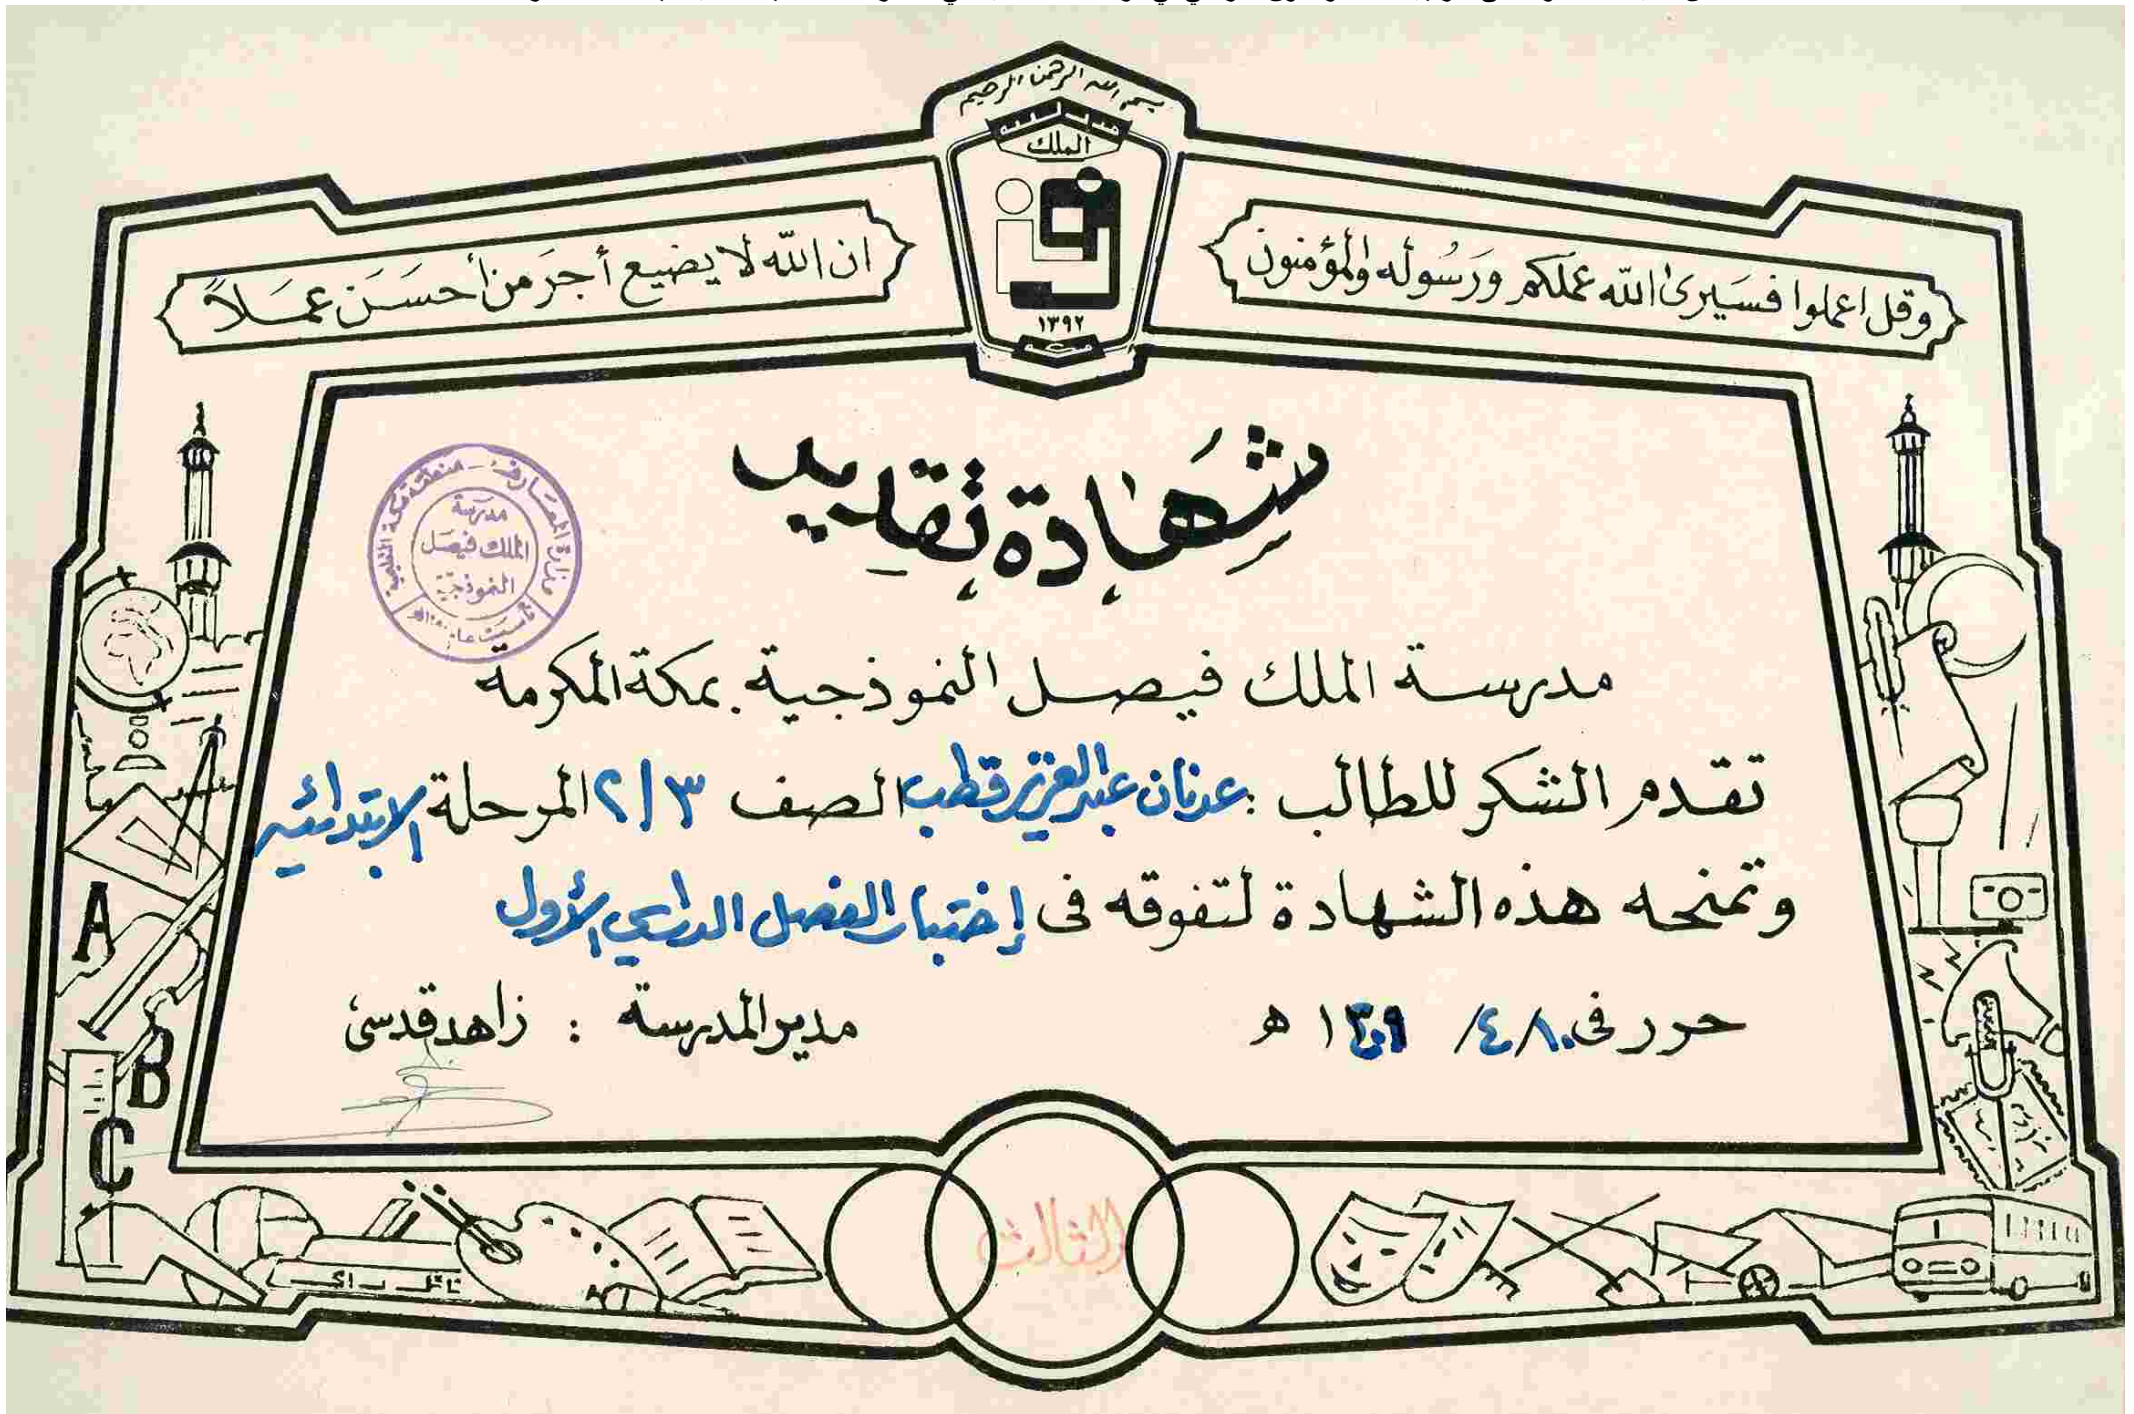 بسم الله الرحمن الرحيم
مدرسة
الملك
١٣٩٢
مكة
وقل اعملوا فسيرى الله عملكم ورسوله والمؤمنون
ان الله لا يضيع أجر من أحسن عملاً
شهادة تقدير
وزارة المعارف - منطقة مكة التعليمية
مدرسة
الملك فيصل
النموذجية
مدرسة الملك فيصل النموذجية بمكة المكرمة
تقدم الشكر للطالب : عدنان عبدالعزيز قطب الصف ٢/٣ المرحلة الابتدائيه
وتمنحه هذه الشهادة لتفوقه فى إختبار الفصل الدراسي الأول
حرر فى ١٠/ ٤/ ١٤٠٩ هـ
مدير المدرسة : زاهد قدسى
A
B
C
الثالث